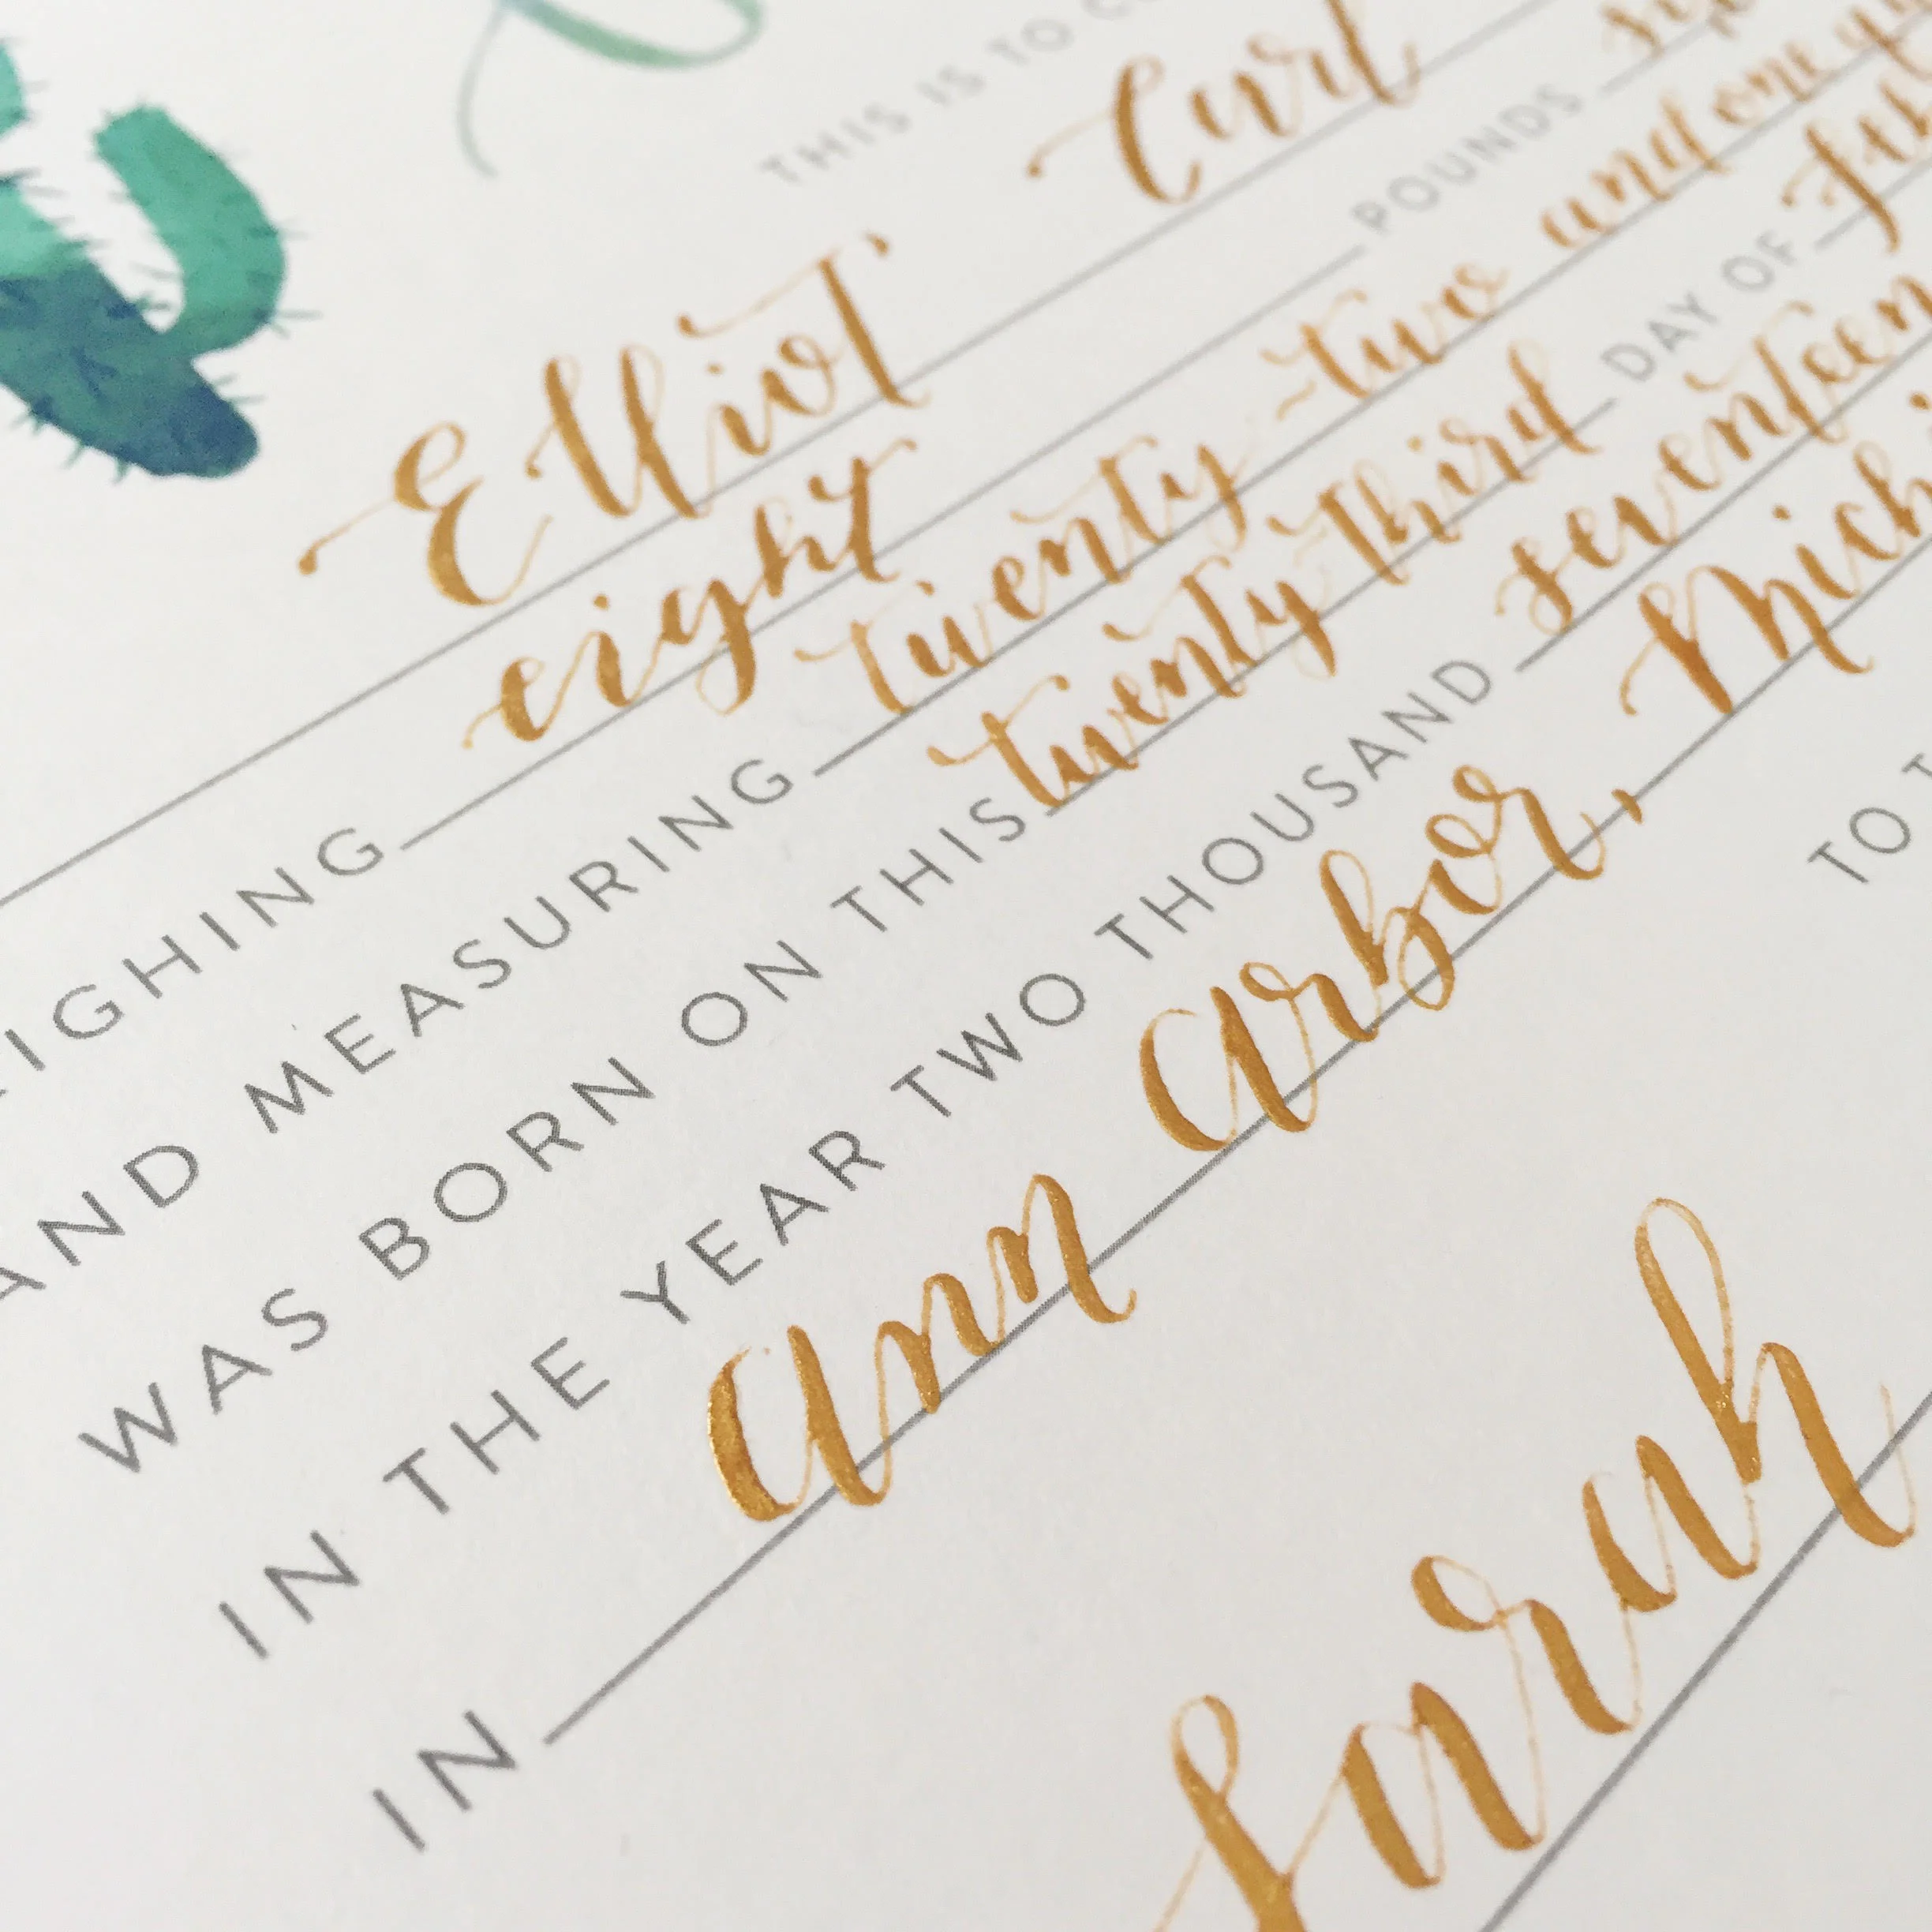 THIS IS TO
Elliot Carl
IGHING eight POUNDS
AND MEASURING twenty-two and one
WAS BORN ON THIS twenty third DAY OF
IN THE YEAR TWO THOUSAND seventeen
IN Ann Arbor, Mich
TO
Sarah